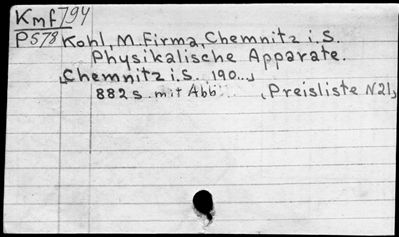 Kmf794
P578 Kohl, M. Firma, Chemnitz i.S.
Physikalische Apparate.
Chemnitz i.S. 190..,
882 s. mit Abb. (Preisliste N21)